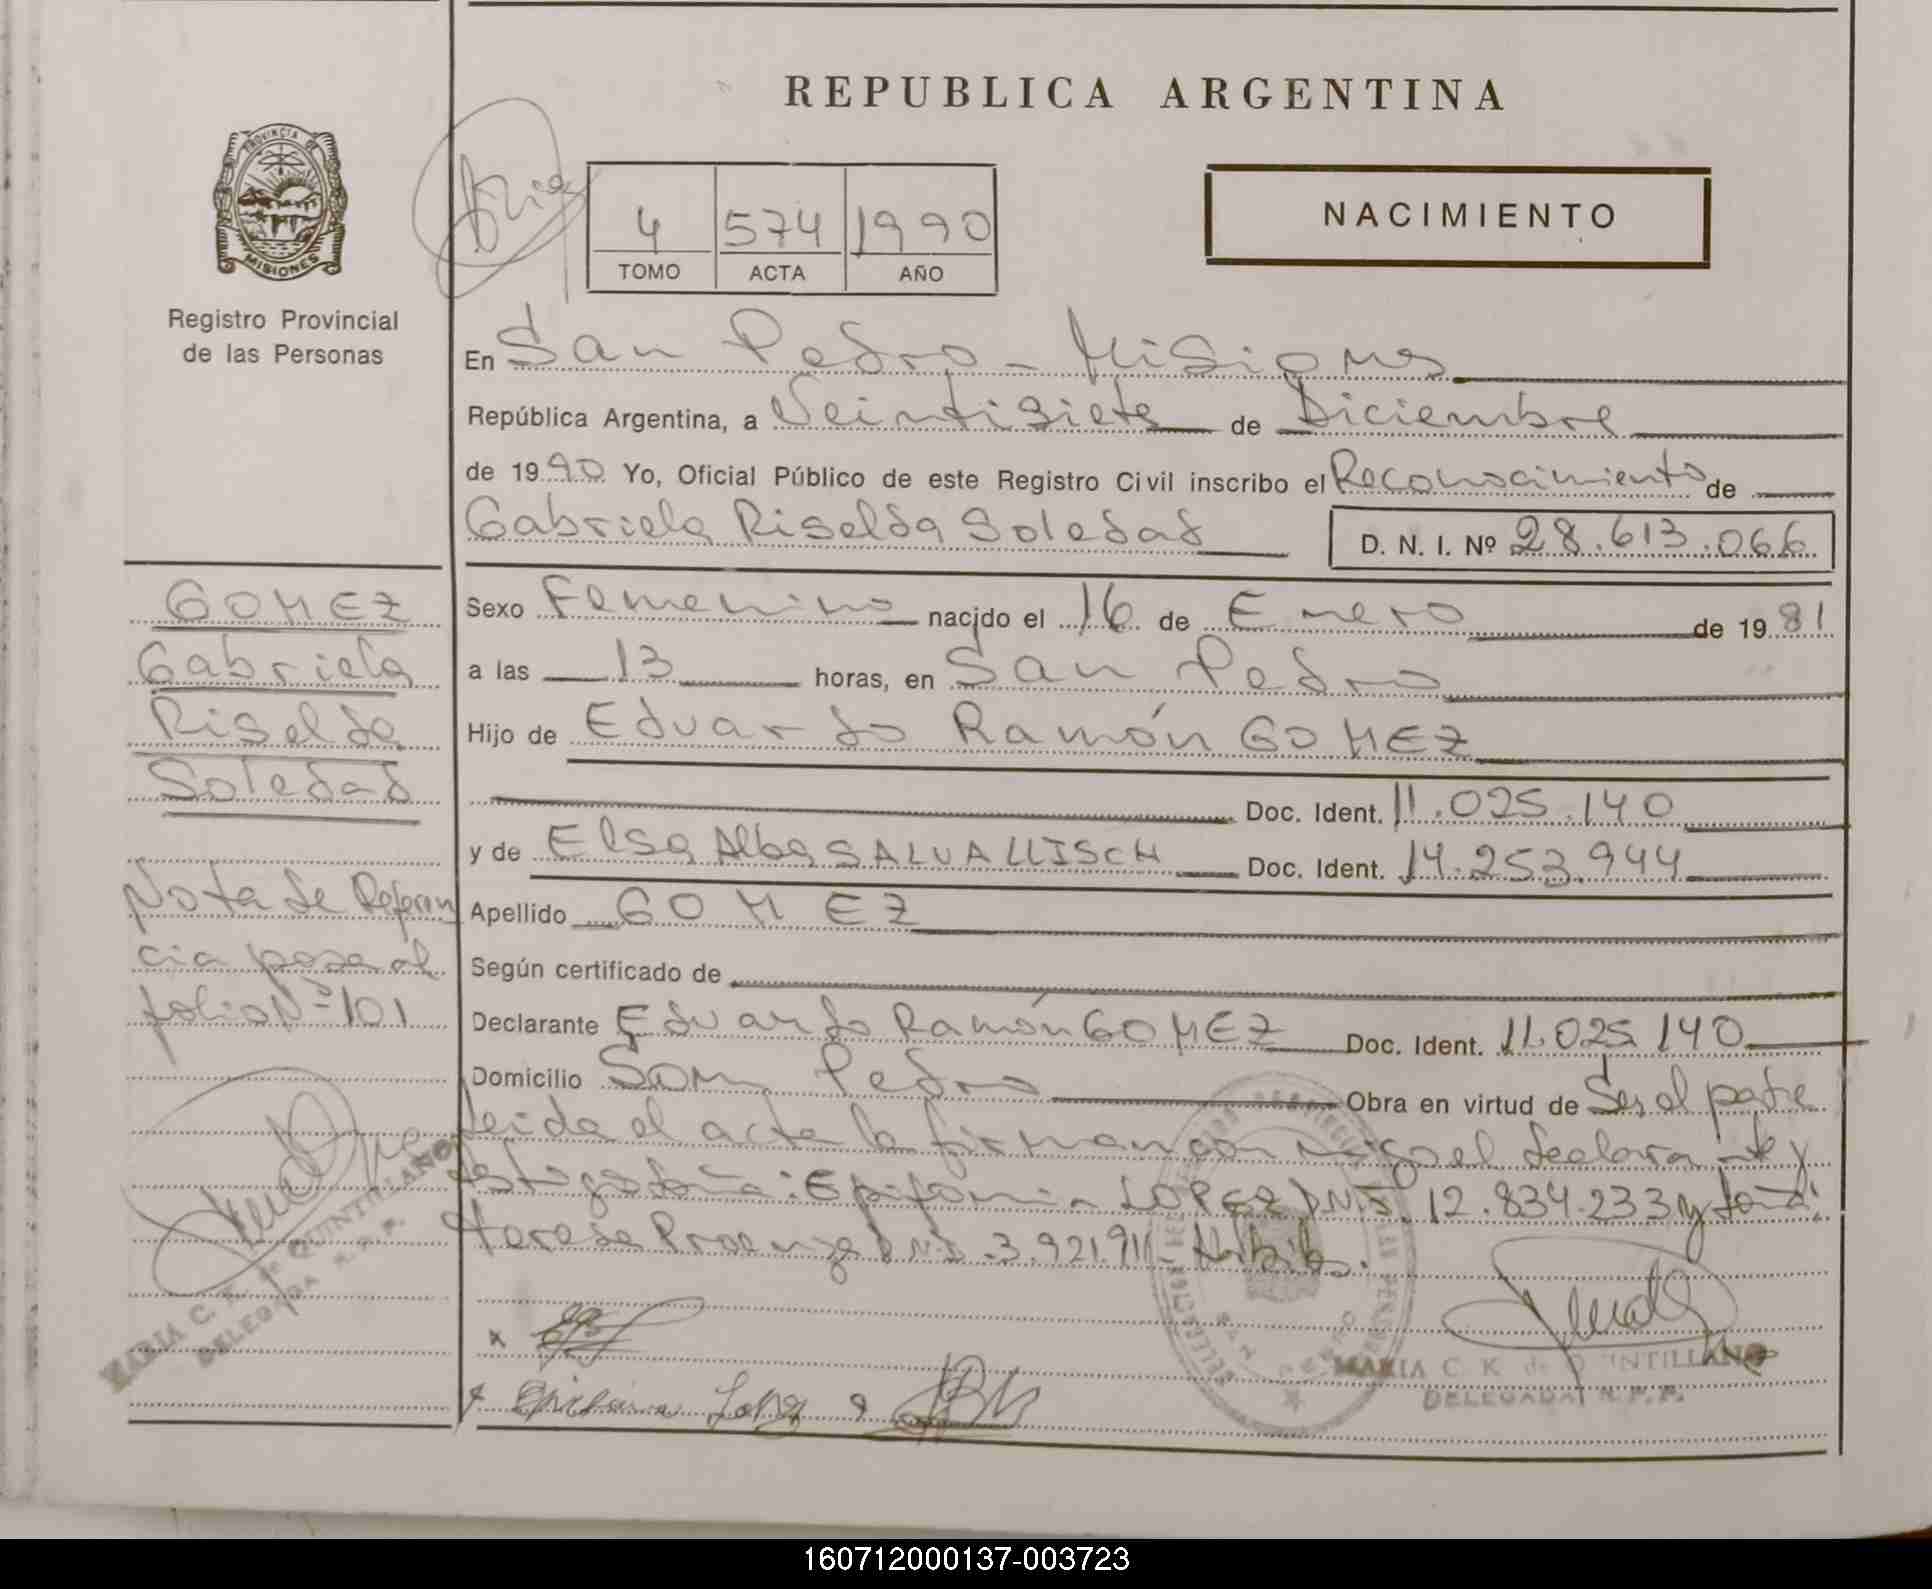 REPUBLICA ARGENTINA
PROVINCIA DE
MISIONES
Registro Provincial
de las Personas
4 574 1990
TOMO ACTA AÑO
NACIMIENTO
En San Pedro - Misiones
República Argentina, a Veintisiete de Diciembre
de 1990 Yo, Oficial Público de este Registro Civil inscribo el Reconocimiento de
Gabriela Riselda Soledad D. N. I. Nº 28.613.066
GOMEZ
Gabriela
Riselda
Soledad
Nota de Referen
cia pasa al
folio Nº 101
MARIA C. K. de QUINTILLANO
DELEGADA R.P.P.
Sexo Femenino nacido el 16 de Enero de 1981
a las 13 horas, en San Pedro
Hijo de Eduardo Ramón GOMEZ
Doc. Ident. 11.025.140
y de Elsa Alba SALVALLISCH Doc. Ident. 14.253.944
Apellido GOMEZ
Según certificado de
Declarante Eduardo Ramón GOMEZ Doc. Ident. 11.025.140
Domicilio San Pedro Obra en virtud de Ser el padre
Leida el acta la firman con migo el declarante y
testigos doña: Epifania LOPEZ D.N.I. 12.834.233 y doña:
Teresa Proenza D.N.I. 3.921.911
Epifania Lopez
MARIA C. K. de QUINTILLANO
DELEGADA R.P.P.
160712000137-003723